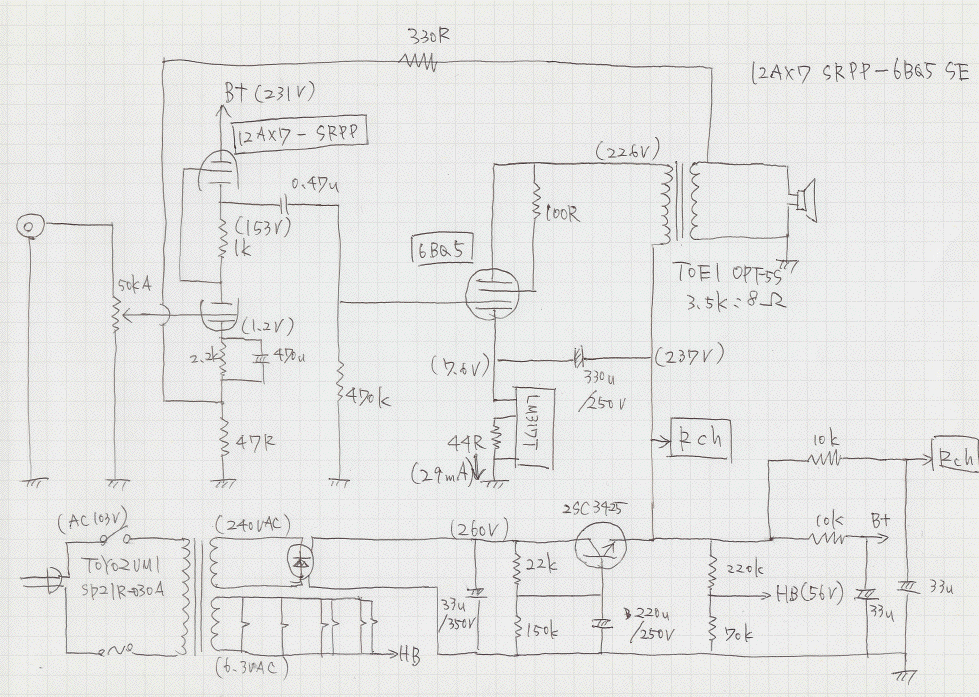 330R
12AX7 SRPP-6BQ5 SE
B+ (231V)
12AX7-SRPP
0.47u
(226V)
(153V)
1k
100R
6BQ5
TOEI OPT-5S
3.5k:8Ω
50kA
(1.2V)
2.2k
470u
(7.6V)
(237V)
330u
/250V
470k
LM317T
47R
44R
(29mA)
Rch
10k
Rch
2SC3425
(AC103V)
(240VAC)
(260V)
10k
B+
TOYOZUMI
SP21R-030A
22k
220k
HB(56V)
33u
33u
33u
/350V
150k
220u
/250V
70k
HB
(6.3VAC)